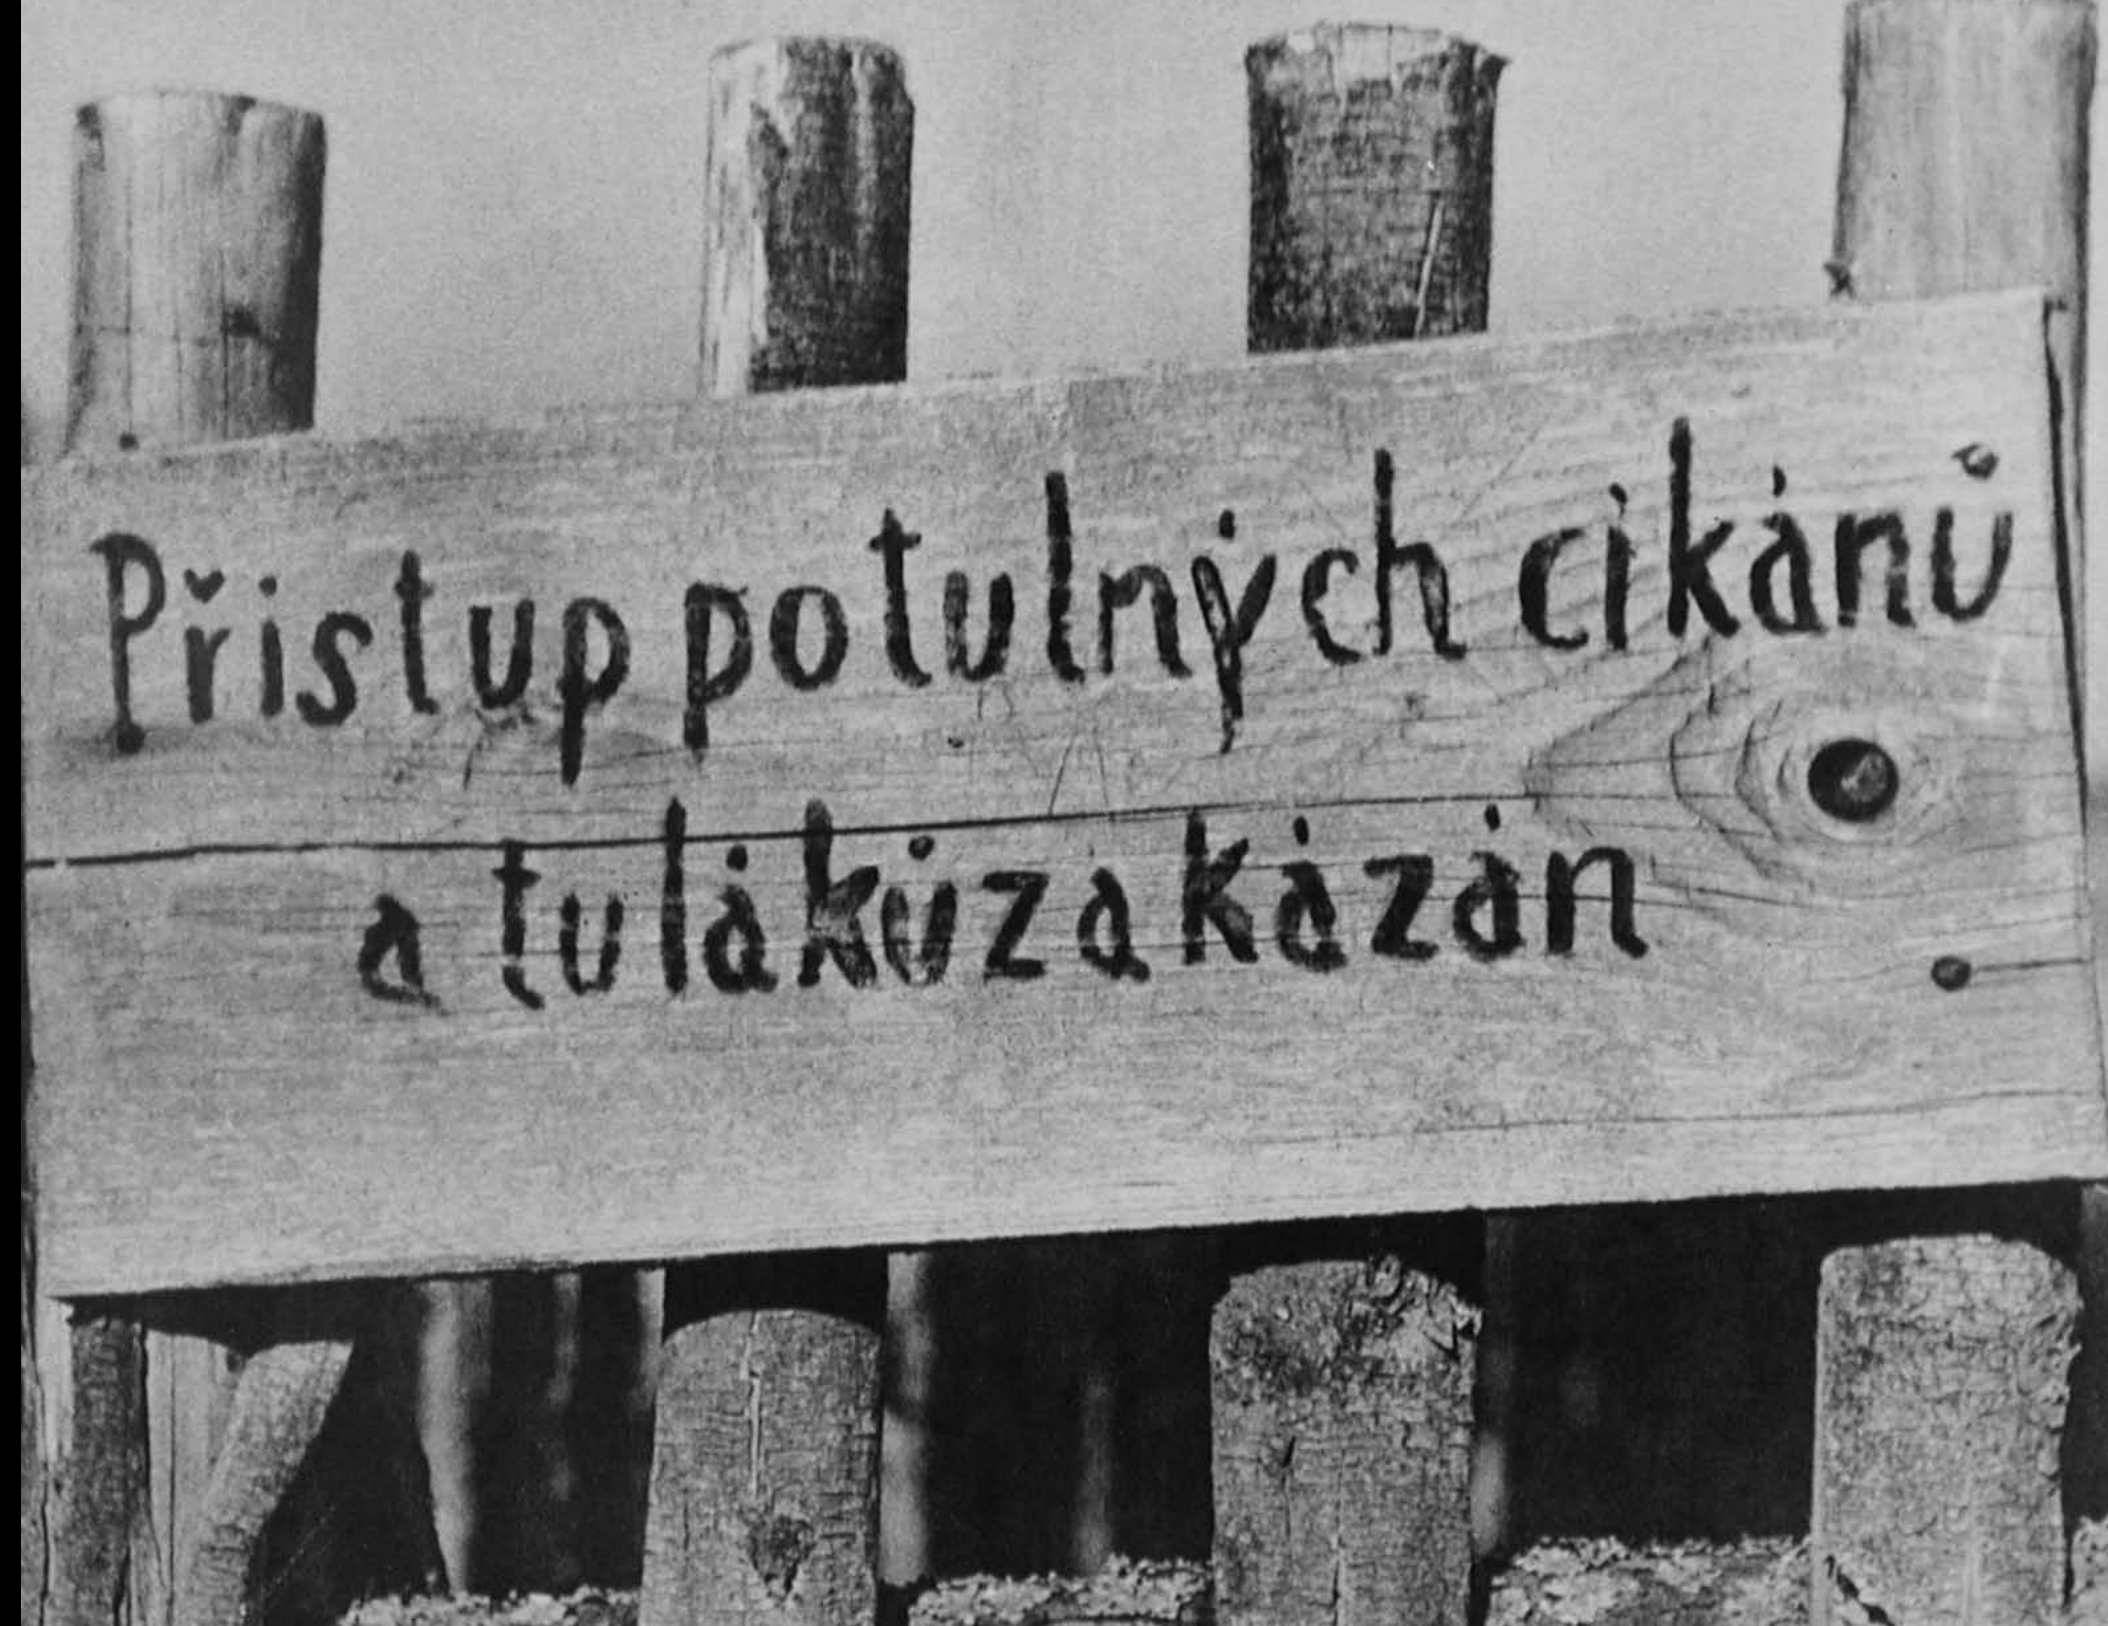 Přistup potulných cikánů
a tuláků zakázán